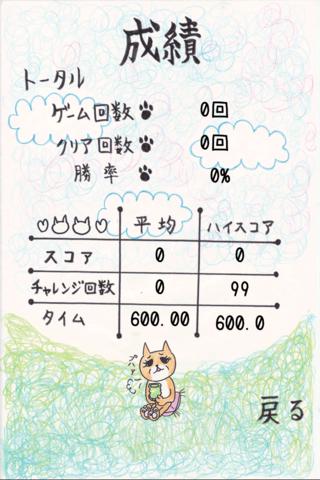 成績
トータル
ゲーム回数 0回
クリア回数 0回
勝率 0%
平均 ハイスコア
スコア 0 0
チャレンジ回数 0 99
タイム 600.00 600.0
戻る